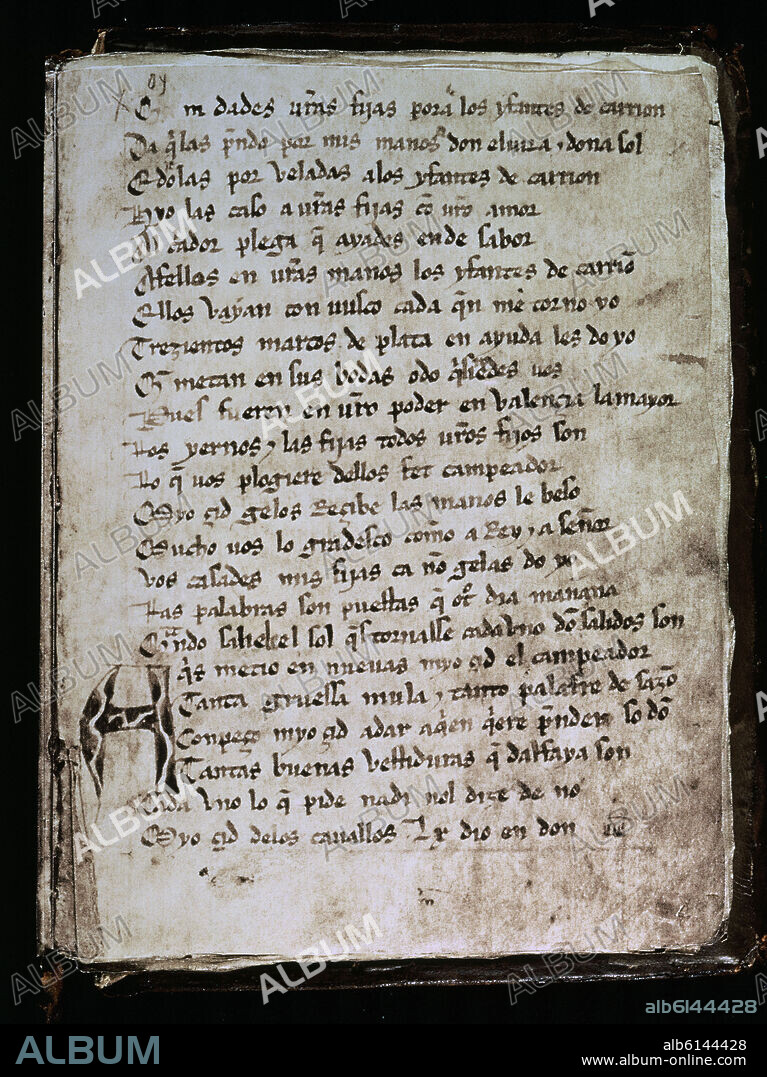 oy
E m dades ur̃as fijas poraᵃ los yfantes de carrion
Da q̃las p̃ndo por mis manos don eluira ⁊ dona sol
E dolas por veladas alos yfantes de carrion
Hyo las caso a ur̃as fijas cõ ur̃o amor
Al cador plega q̃ ayades ende sabor
Afellos en ur̃as manos los yfantes de carriõ
Ellos vayan con uusco cada q̃n me torno yo
Trezientos marcos de plata en ayuda les do yo
metan en sus bodas o do q̃sieredes uos
Pues fueren en ur̃o poder en valencia la mayor
Los yernos ⁊ las fijas todos ur̃os fijos son
Lo q̃ uos plogiere dellos fet campeador
Myo çid gelos Reçibe las manos le beso
Mucho uos lo gradesco como a Rey ⁊ a señor
Vos casades mis fijas ca nõ gelas do yo
Las palabras son puestas q̃ ot̃ dia manana
Qᵃndo salie el sol q̃s tornasse cada vno dõ salidos son
Aq̃s metio en nueuas myo çid el campeador
Tanta gruessa mula ⁊ tanto palafre de sazõ
Conpeço myo çid a dar a q̃en q̃ere p̃nder so dõ
Tantas buenas vestiduras q̃ dalfaya son
Cada vno lo q̃ pide nadi nol dize de no
Myo çid delos cauallos Lx dio en don
ALBUM
alb6144428
ALBUM
alb6144428
www.album-online.com